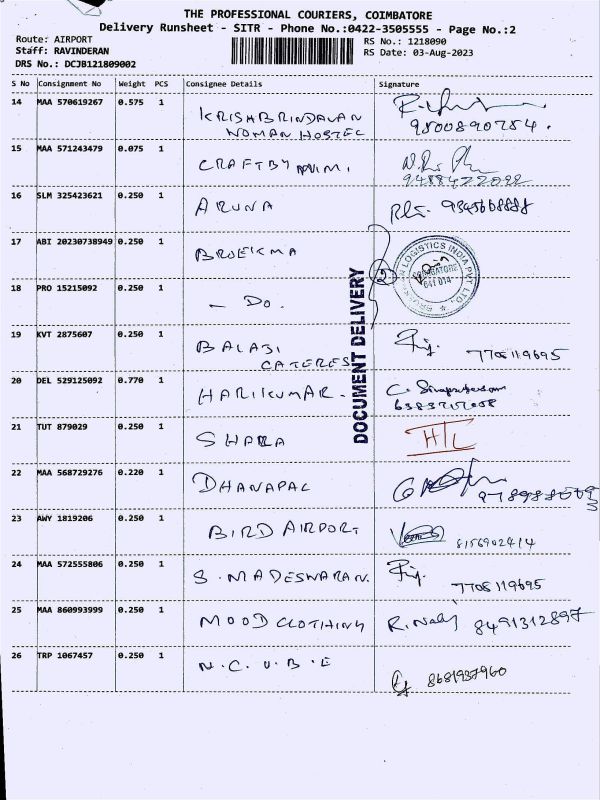 THE PROFESSIONAL COURIERS, COIMBATORE
Delivery Runsheet - SITR - Phone No.:0422-3505555 - Page No.:2
Route: AIRPORT
Staff: RAVINDERAN
DRS No.: DCJB121809002
RS No.: 1218090
RS Date: 03-Aug-2023
S No Consignment No Weight PCS Consignee Details Signature
14 MAA 570619267 0.575 1 KRISHBRINDAVAN
WOMAN HOSTEL 9500890784.
15 MAA 571243479 0.075 1 CRAFTBY
16 SLM 325423621 0.250 1 ARUNA
17 ABI 20230738949 0.250 1 BROEKMA
LOGISTICS INDIA PVT LTD.
COIMBATORE
641 014
18 PRO 15215092 0.250 1 - DO.
DOCUMENT DELIVERY
19 KVT 2875607 0.250 1 BALAJI
CATERES 7708119695
20 DEL 529125092 0.770 1 HARIKUMAR.
21 TUT 879029 0.250 1 SHARA
22 MAA 568729276 0.220 1 DHANAPAL
23 AWY 1819206 0.250 1 BIRD AIRPORT 8156902414
24 MAA 572555806 0.250 1 S. MADESWARAN. 7708119695
25 MAA 860993999 0.250 1 MOOD CLOTHING 8491312897
26 TRP 1067457 0.250 1 N.C.U.B.E 8681937960